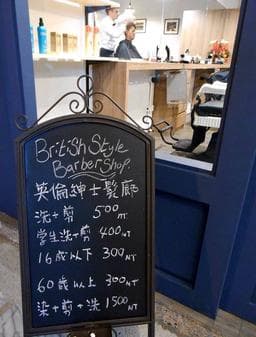 British Style
Barber Shop.
英倫紳士髮廊
洗+剪 500NT
学生洗+剪 400NT
16歲以下 300NT
60歲以上 300NT
染+剪+洗 1500NT